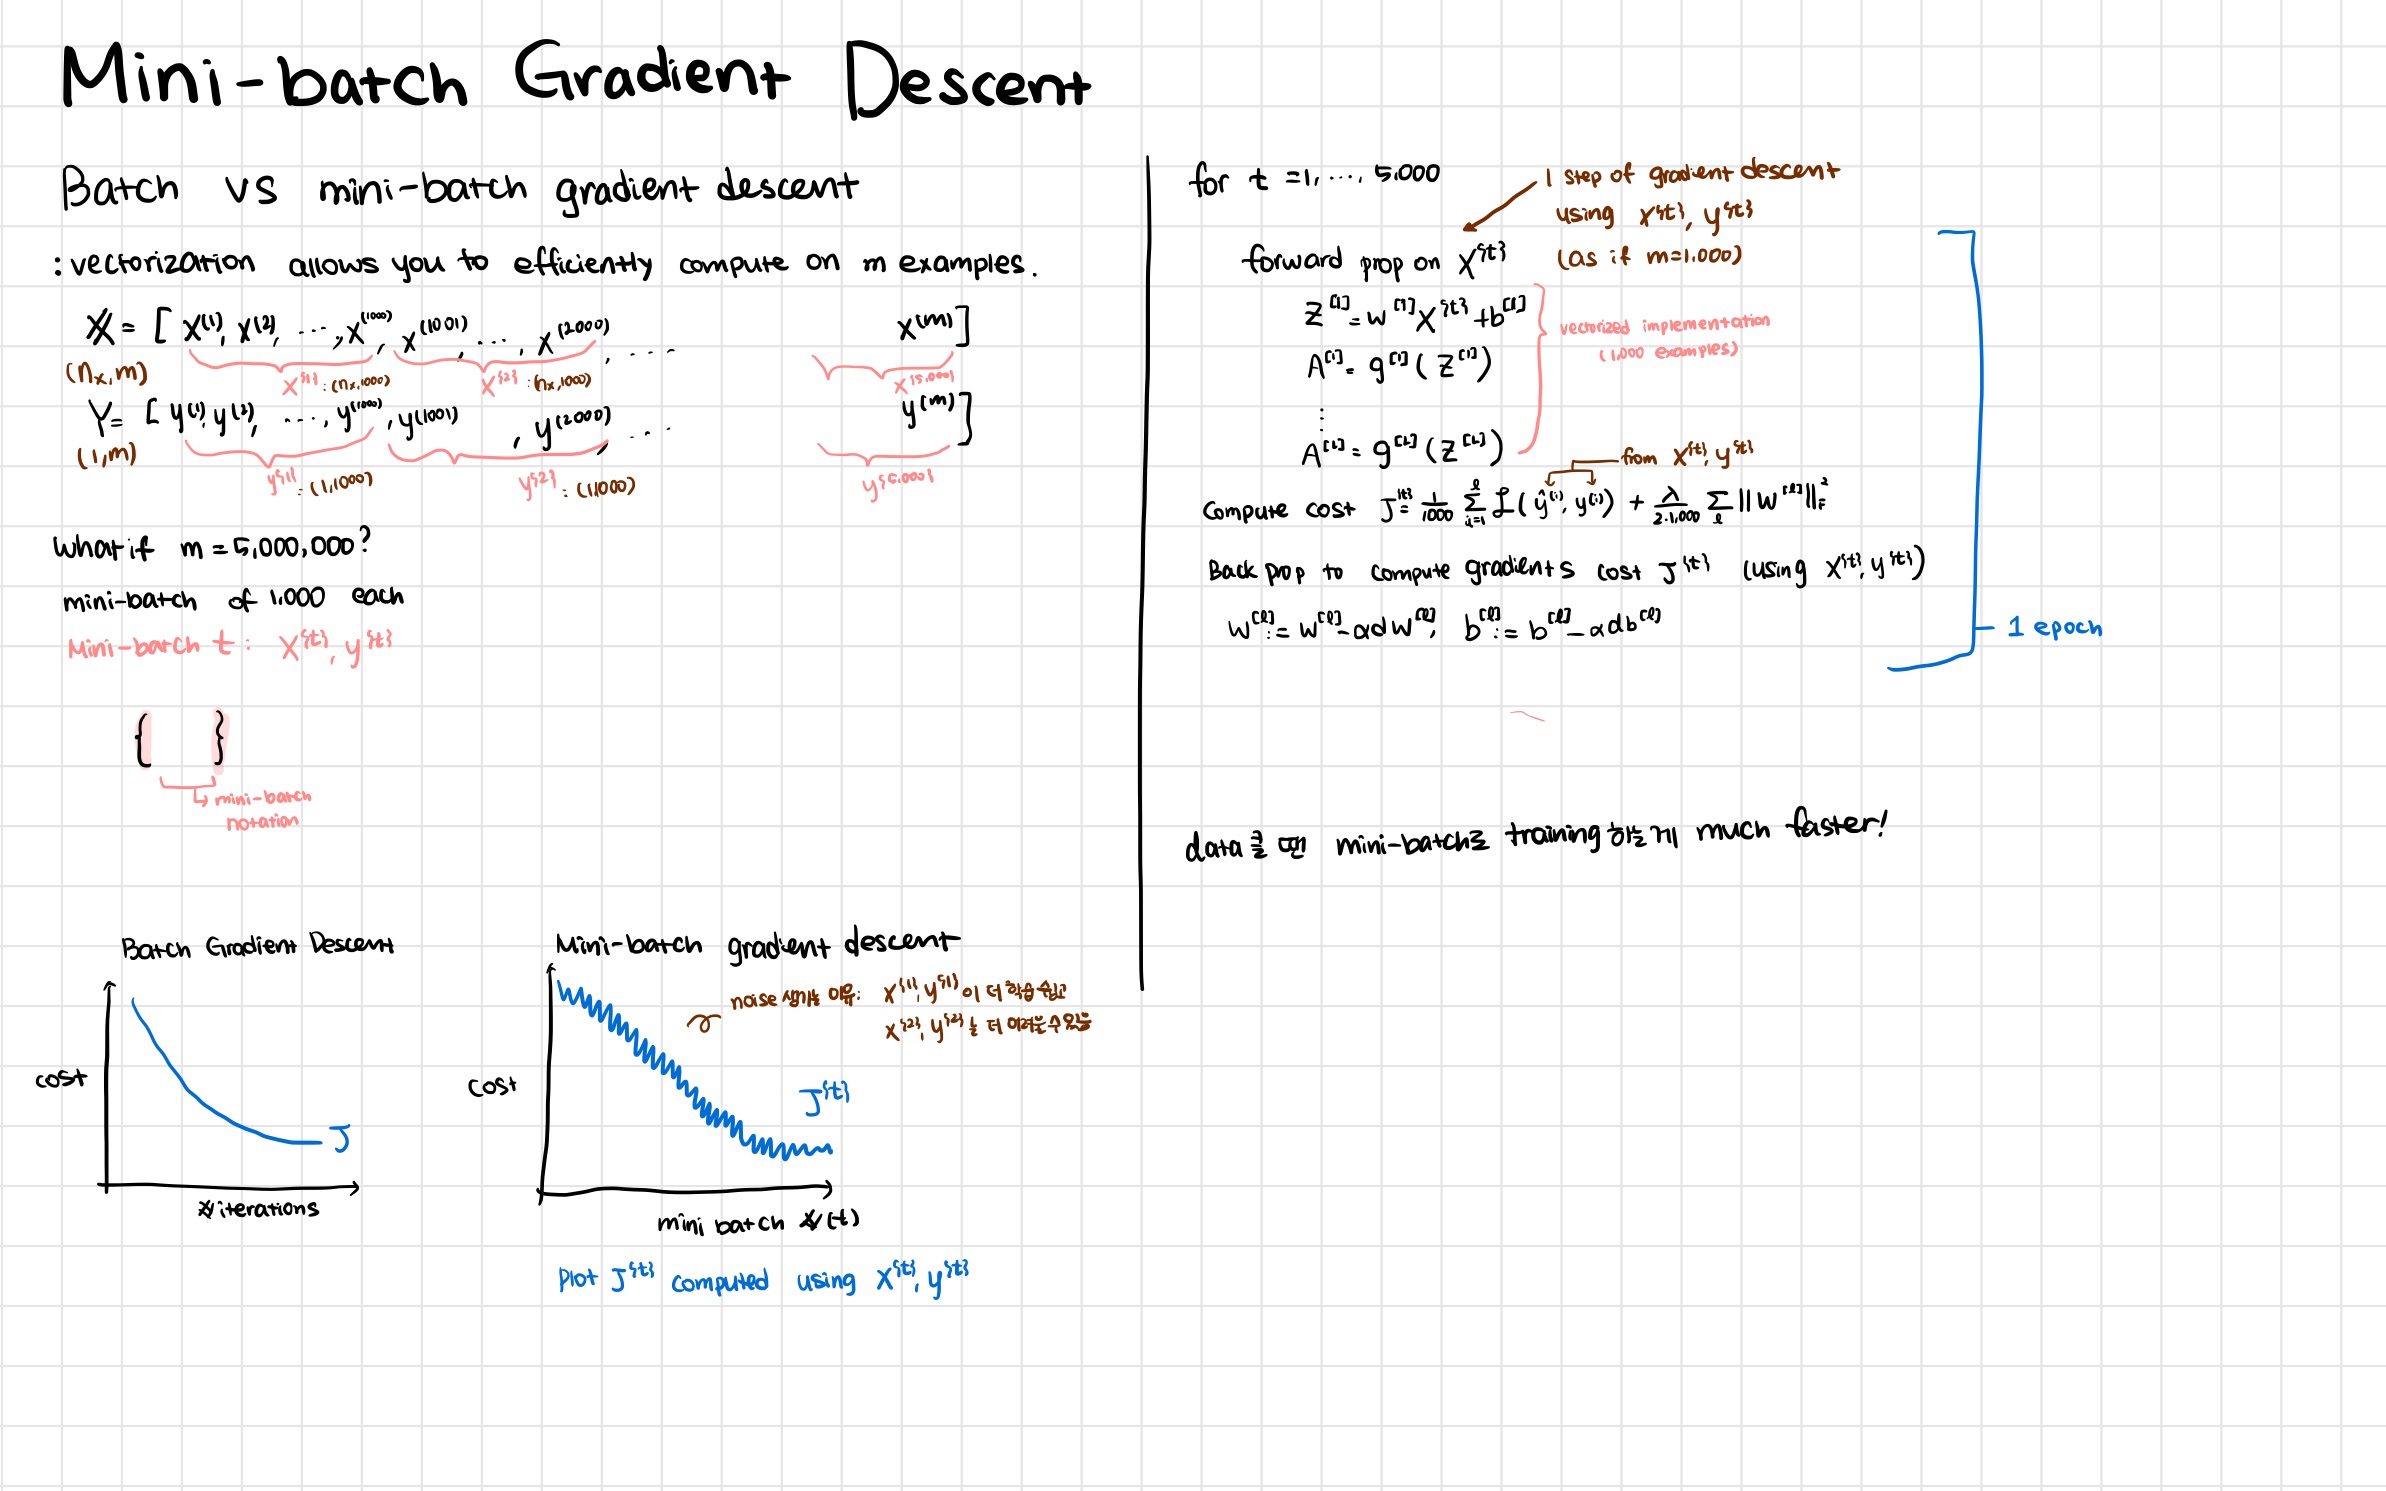 Mini-batch Gradient Descent
Batch vs mini-batch gradient descent
: vectorization allows you to efficiently compute on m examples.
X = [ x^(1), x^(2), ..., x^(1000), x^(1001), ..., x^(2000), .... x^(m) ]
(n_x, m)
X^{1} : (n_x, 1000) X^{2} : (n_x, 1000) X^{5,000}
Y = [ y^(1), y^(2), ..., y^(1000), y^(1001) , y^(2000), .... y^(m) ]
(1, m)
Y^{1} : (1, 1000) Y^{2} : (1, 1000) Y^{5,000}
what if m = 5,000,000?
mini-batch of 1,000 each
Mini-batch t : X^{t}, y^{t}
{ }
mini-batch
notation
Batch Gradient Descent
cost
J
# iterations
Mini-batch gradient descent
noise 생기는 이유: X^{1}, y^{1} 이 더 학습 쉽고
X^{2}, y^{2} 는 더 어려울 수 있음
cost
J^{t}
mini batch # (t)
Plot J^{t} computed using X^{t}, y^{t}
for t = 1, ..., 5,000
1 step of gradient descent
using X^{t}, y^{t}
(as if m = 1,000)
forward prop on X^{t}
Z^[1] = w^[1] X^{t} + b^[1]
A^[1] = g^[1] ( Z^[1] )
⋮
A^[L] = g^[L] ( Z^[L] )
vectorized implementation
(1,000 examples)
from X^{t}, y^{t}
Compute cost J^{t} = 1/1000 Σ_{i=1}^{l} L( ŷ^(i), y^(i) ) + λ/2·1,000 Σ_l ||W^[l]||_F^2
Back prop to compute gradients cost J^{t} (using X^{t}, y^{t})
W^[l] := W^[l] - αdW^[l], b^[l] := b^[l] - αdb^[l]
1 epoch
data 클 땐 mini-batch로 training 하는게 much faster!